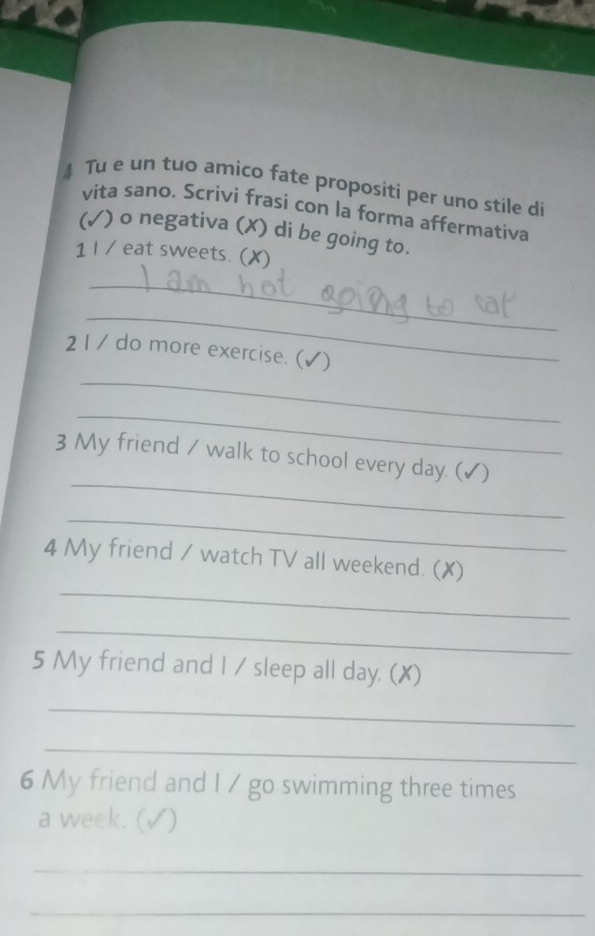 4 Tu e un tuo amico fate propositi per uno stile di
vita sano. Scrivi frasi con la forma affermativa
(✓) o negativa (✗) di be going to.
1 I / eat sweets. (✗)
I am not going to eat
2 I / do more exercise. (✓)
3 My friend / walk to school every day. (✓)
4 My friend / watch TV all weekend. (✗)
5 My friend and I / sleep all day. (✗)
6 My friend and I / go swimming three times
a week. (✓)